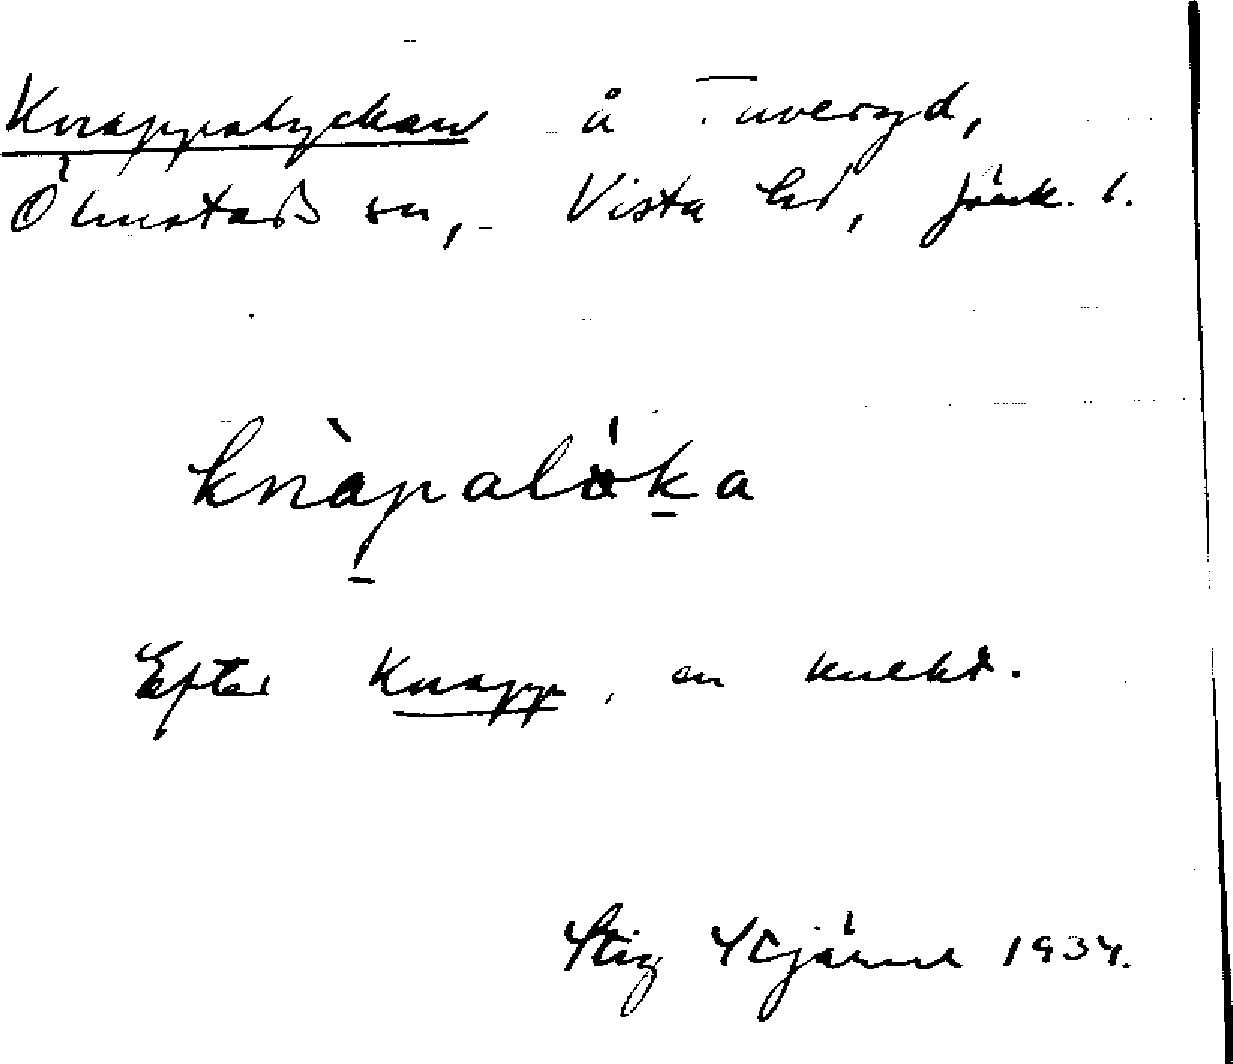 Knappalyckan å Tuveryd,
Ölmstads sn, Vista hd, Jönk. l.
knàpalö́ka
Efter Knapp, en knekt.
Stig Stjärne 1934.